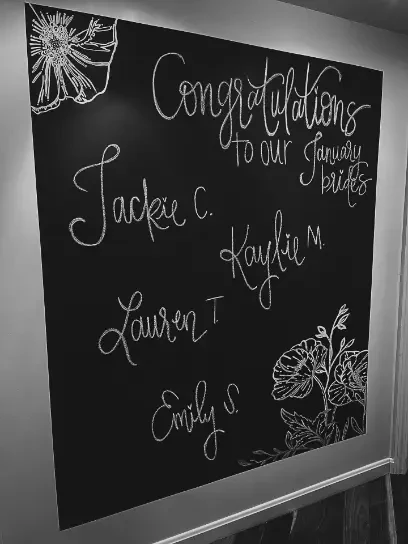 Congratulations
to our January
brides
Jackie C.
Kaylie M.
Lauren T
Emily S.